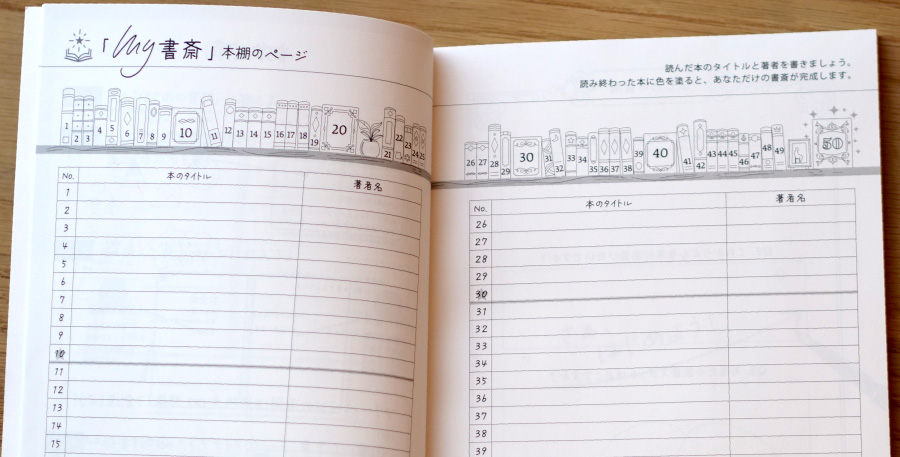 「My書斎」本棚のページ
1 2 3 4 5 6 7 8 9 10 11 12 13 14 15 16 17 18 19 20 21 22 23 24 25
No. 本のタイトル 著者名
1
2
3
4
5
6
7
8
9
10
11
12
13
14
15
読んだ本のタイトルと著者を書きましょう。
読み終わった本に色を塗ると、あなただけの書斎が完成します。
26 27 28 29 30 31 32 33 34 35 36 37 38 39 40 41 42 43 44 45 46 47 48 49 50
No. 本のタイトル 著者名
26
27
28
29
30
31
32
33
34
35
36
37
38
39